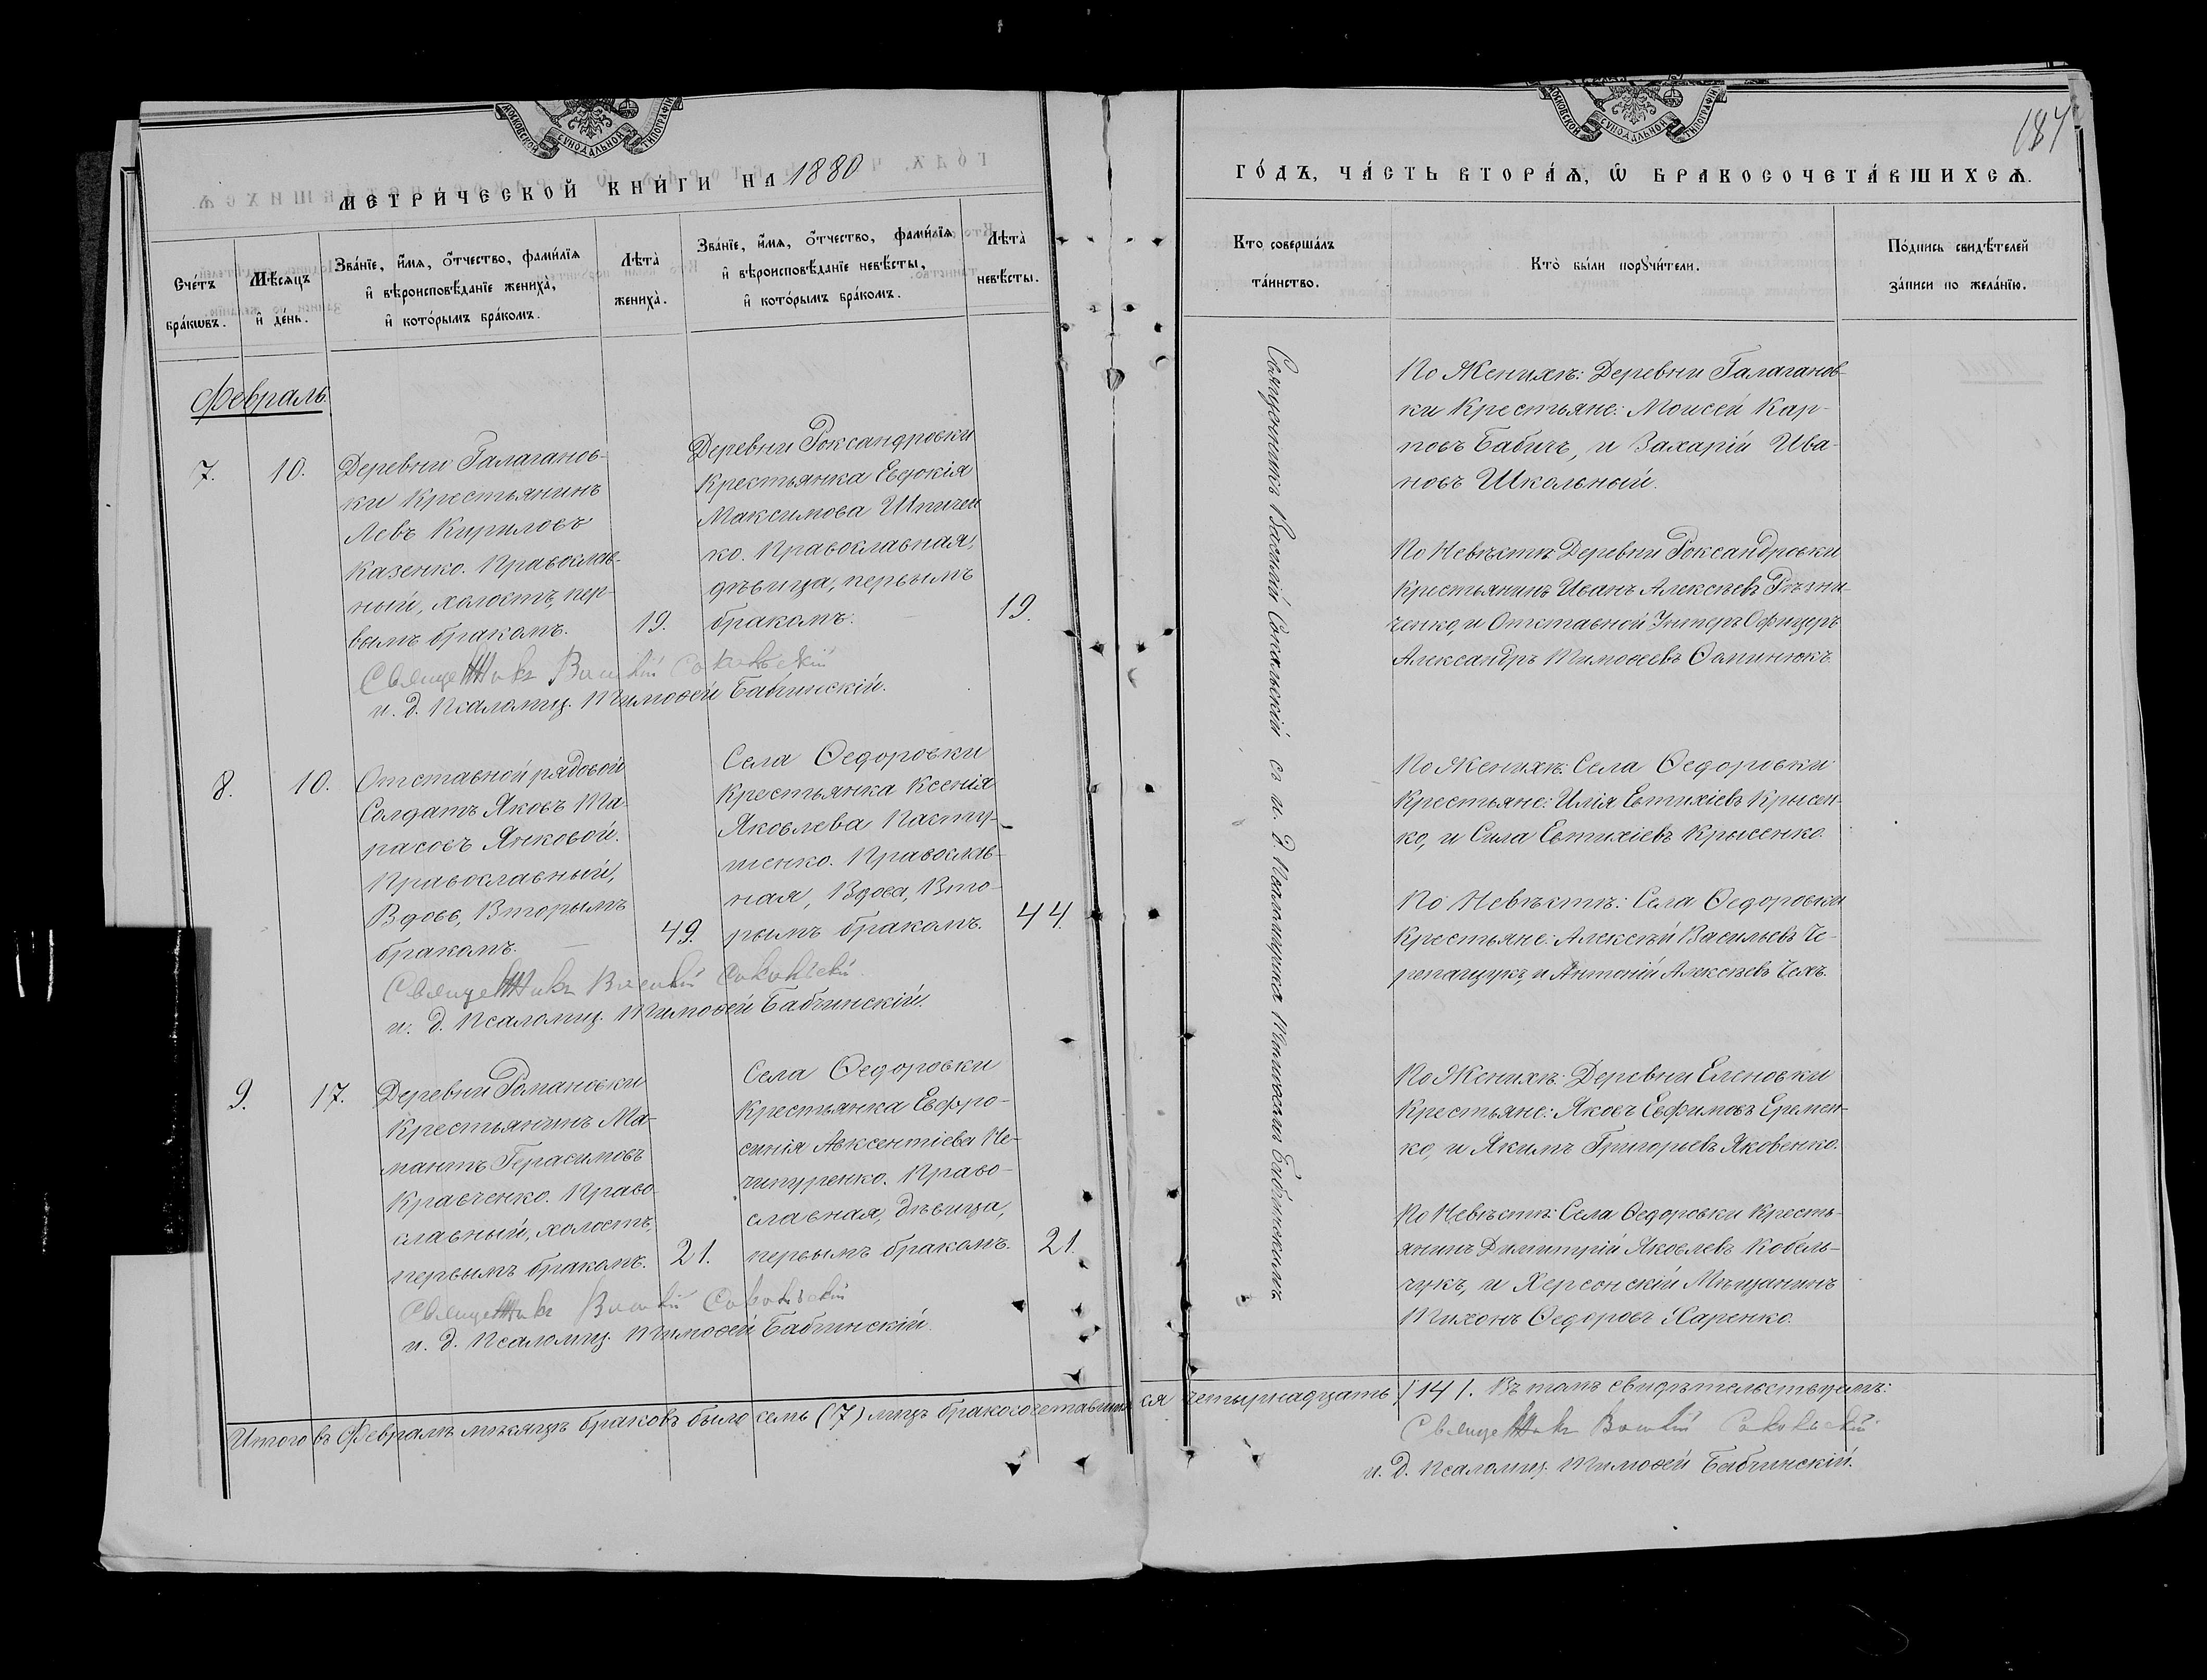 МОСКОВСКОЙ СѴНОДАЛЬНОЙ ТИПОГРАФІИ
МЕТРИ́ЧЕСКОЙ КНИ́ГИ НА 1880
Сче́тъ бра́кѡвъ.
Мѣ́сяцъ и҆ де́нь.
Зва́нїе, и҆́мѧ, ѻ҆́тчество, фами́лїѧ
и҆ вѣроисповѣ́данїе жениха̀,
и҆ кото́рымъ бра́комъ.
Лѣта̀ жениха̀.
Зва́нїе, и҆́мѧ, ѻ҆́тчество, фами́лїѧ
и҆ вѣроисповѣ́данїе невѣ́сты,
и҆ кото́рымъ бра́комъ.
Лѣта̀ невѣ́сты.
Февраль.
7.
10.
Деревни Галаганов-
ки Крестьянинъ
Левъ Кириловъ
Казенко. Православ-
ный, холостъ, пер-
вымъ бракомъ.
19.
Деревни Роксандровки
Крестьянка Евдокія
Максимова Шпичен
ко. Православная,
дѣвица, первымъ
бракомъ.
19.
Священникъ Василій Сокальскій
и. д. Псаломщ. Тимоѳей Бабчинскій.
8.
10.
Отставной рядовой
Солдатъ Яковъ Та-
расовъ Янковой.
Православный,
Вдовъ, Вторымъ
бракомъ.
49.
Села Ѳедоровки
Крестьянка Ксенія
Яковлева Пасту-
шенко. Православ-
ная, Вдова, Вто-
рымъ бракомъ.
44.
Священникъ Василій Сокальскій
и. д. Псаломщ. Тимоѳей Бабчинскій.
9.
17.
Деревни Романовки
Крестьянинъ Ма-
мантъ Герасимовъ
Кравченко. Право-
славный, холостъ,
первымъ бракомъ.
21.
Села Ѳедоровки
Крестьянка Евфро-
синія Авксентіева Не-
чипуренко. Право-
славная, Дѣвица,
первымъ бракомъ.
21.
Священникъ Василій Сокальскій
и. д. Псаломщ. Тимоѳей Бабчинскій.
Итого въ Февралѣ мѣсяцѣ браковъ было семь (7) лицъ бракосочетавших ся четырнадцать /14/. Въ томъ свидѣтельствуемъ:
МОСКОВСКОЙ СѴНОДАЛЬНОЙ ТИПОГРАФІИ
187
ГО́ДЪ, ЧА́СТЬ ВТОРА́Ѧ, Ѡ҆ БРАКОСОЧЕТА́ВШИХСѦ.
Кто̀ соверша́лъ
та́инство.
Кто̀ бы́ли порꙋчи́тели.
По́дпись свидѣ́телей
за́писи по жела́нїю.
Священникъ Василій Сокальскій съ и. д. Псаломщика Тимоѳеемъ Бабчинскимъ
По Женихѣ: Деревни Галаганов-
ки Крестьяне: Моисей Кар-
повъ Бабичъ, и Захарій Ива-
новъ Школьный.
По Невѣстѣ: Деревни Роксандровки
Крестьянинъ Иванъ Алексѣевъ Рѣзни-
ченко, и Отставной Унтеръ Офицеръ
Александръ Тимоѳеевъ Ѳоминюкъ.
По Женихѣ: Села Ѳедоровки
Крестьяне: Илія Евтихіевъ Крысен-
ко, и Сила Евтихіевъ Крысенко.
По Невѣстѣ: Села Ѳедоровки
Крестьяне: Алексѣй Васильевъ Че-
репащукъ, и Антоній Алексѣевъ Чехъ.
По Женихѣ: Деревни Еленовки
Крестьяне: Яковъ Евфимовъ Еремен-
ко, и Якимъ Григорьевъ Яковенко.
По Невѣстѣ: Села Ѳедоровки Кресть-
янинъ Димитрій Яковлевъ Кобель-
чукъ, и Херсонскій Мѣщанинъ
Тихонъ Ѳедоровъ Харенко.
Священникъ Василій Сокальскій
и. д. Псаломщ. Тимоѳей Бабчинскій.